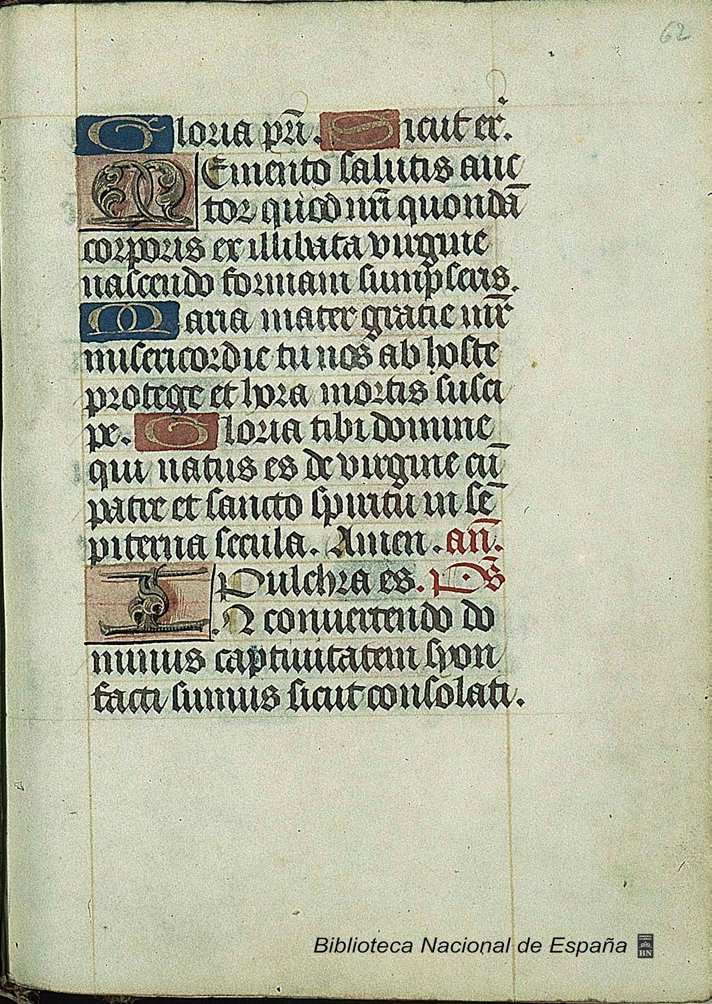 62
Gloria pri. Sicut er.
Memento salutis auc
tor quod nri quondā
corporis ex illibata virgine
nascendo formam sumpseris.
Maria mater gratie mr
misericordie tu nos ab hoste
protege et hora mortis susci
pe. Gloria tibi domine
qui natus es de virgine cū
patre et sancto spiritu in sē
piterna secula. Amen. an.
Pulchra es. Ps
In convertendo do
minus captiuitatem syon
facti sumus sicut consolati.
Biblioteca Nacional de España
BN